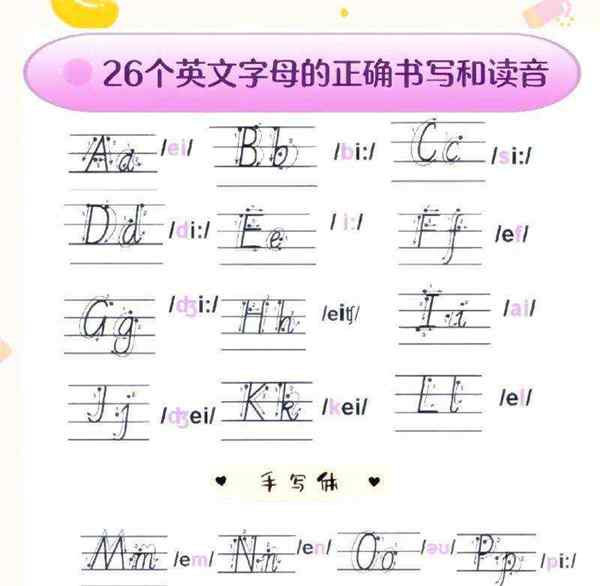 26个英文字母的正确书写和读音
Aa /ei/ Bb /bi:/ Cc /si:/
Dd /di:/ Ee /i:/ Ff /ef/
Gg /ʤi:/ Hh /eitʃ/ Ii /ai/
Jj /ʤei/ Kk /kei/ Ll /el/
手写体
Mm /em/ Nn /en/ Oo /əu/ Pp /pi:/